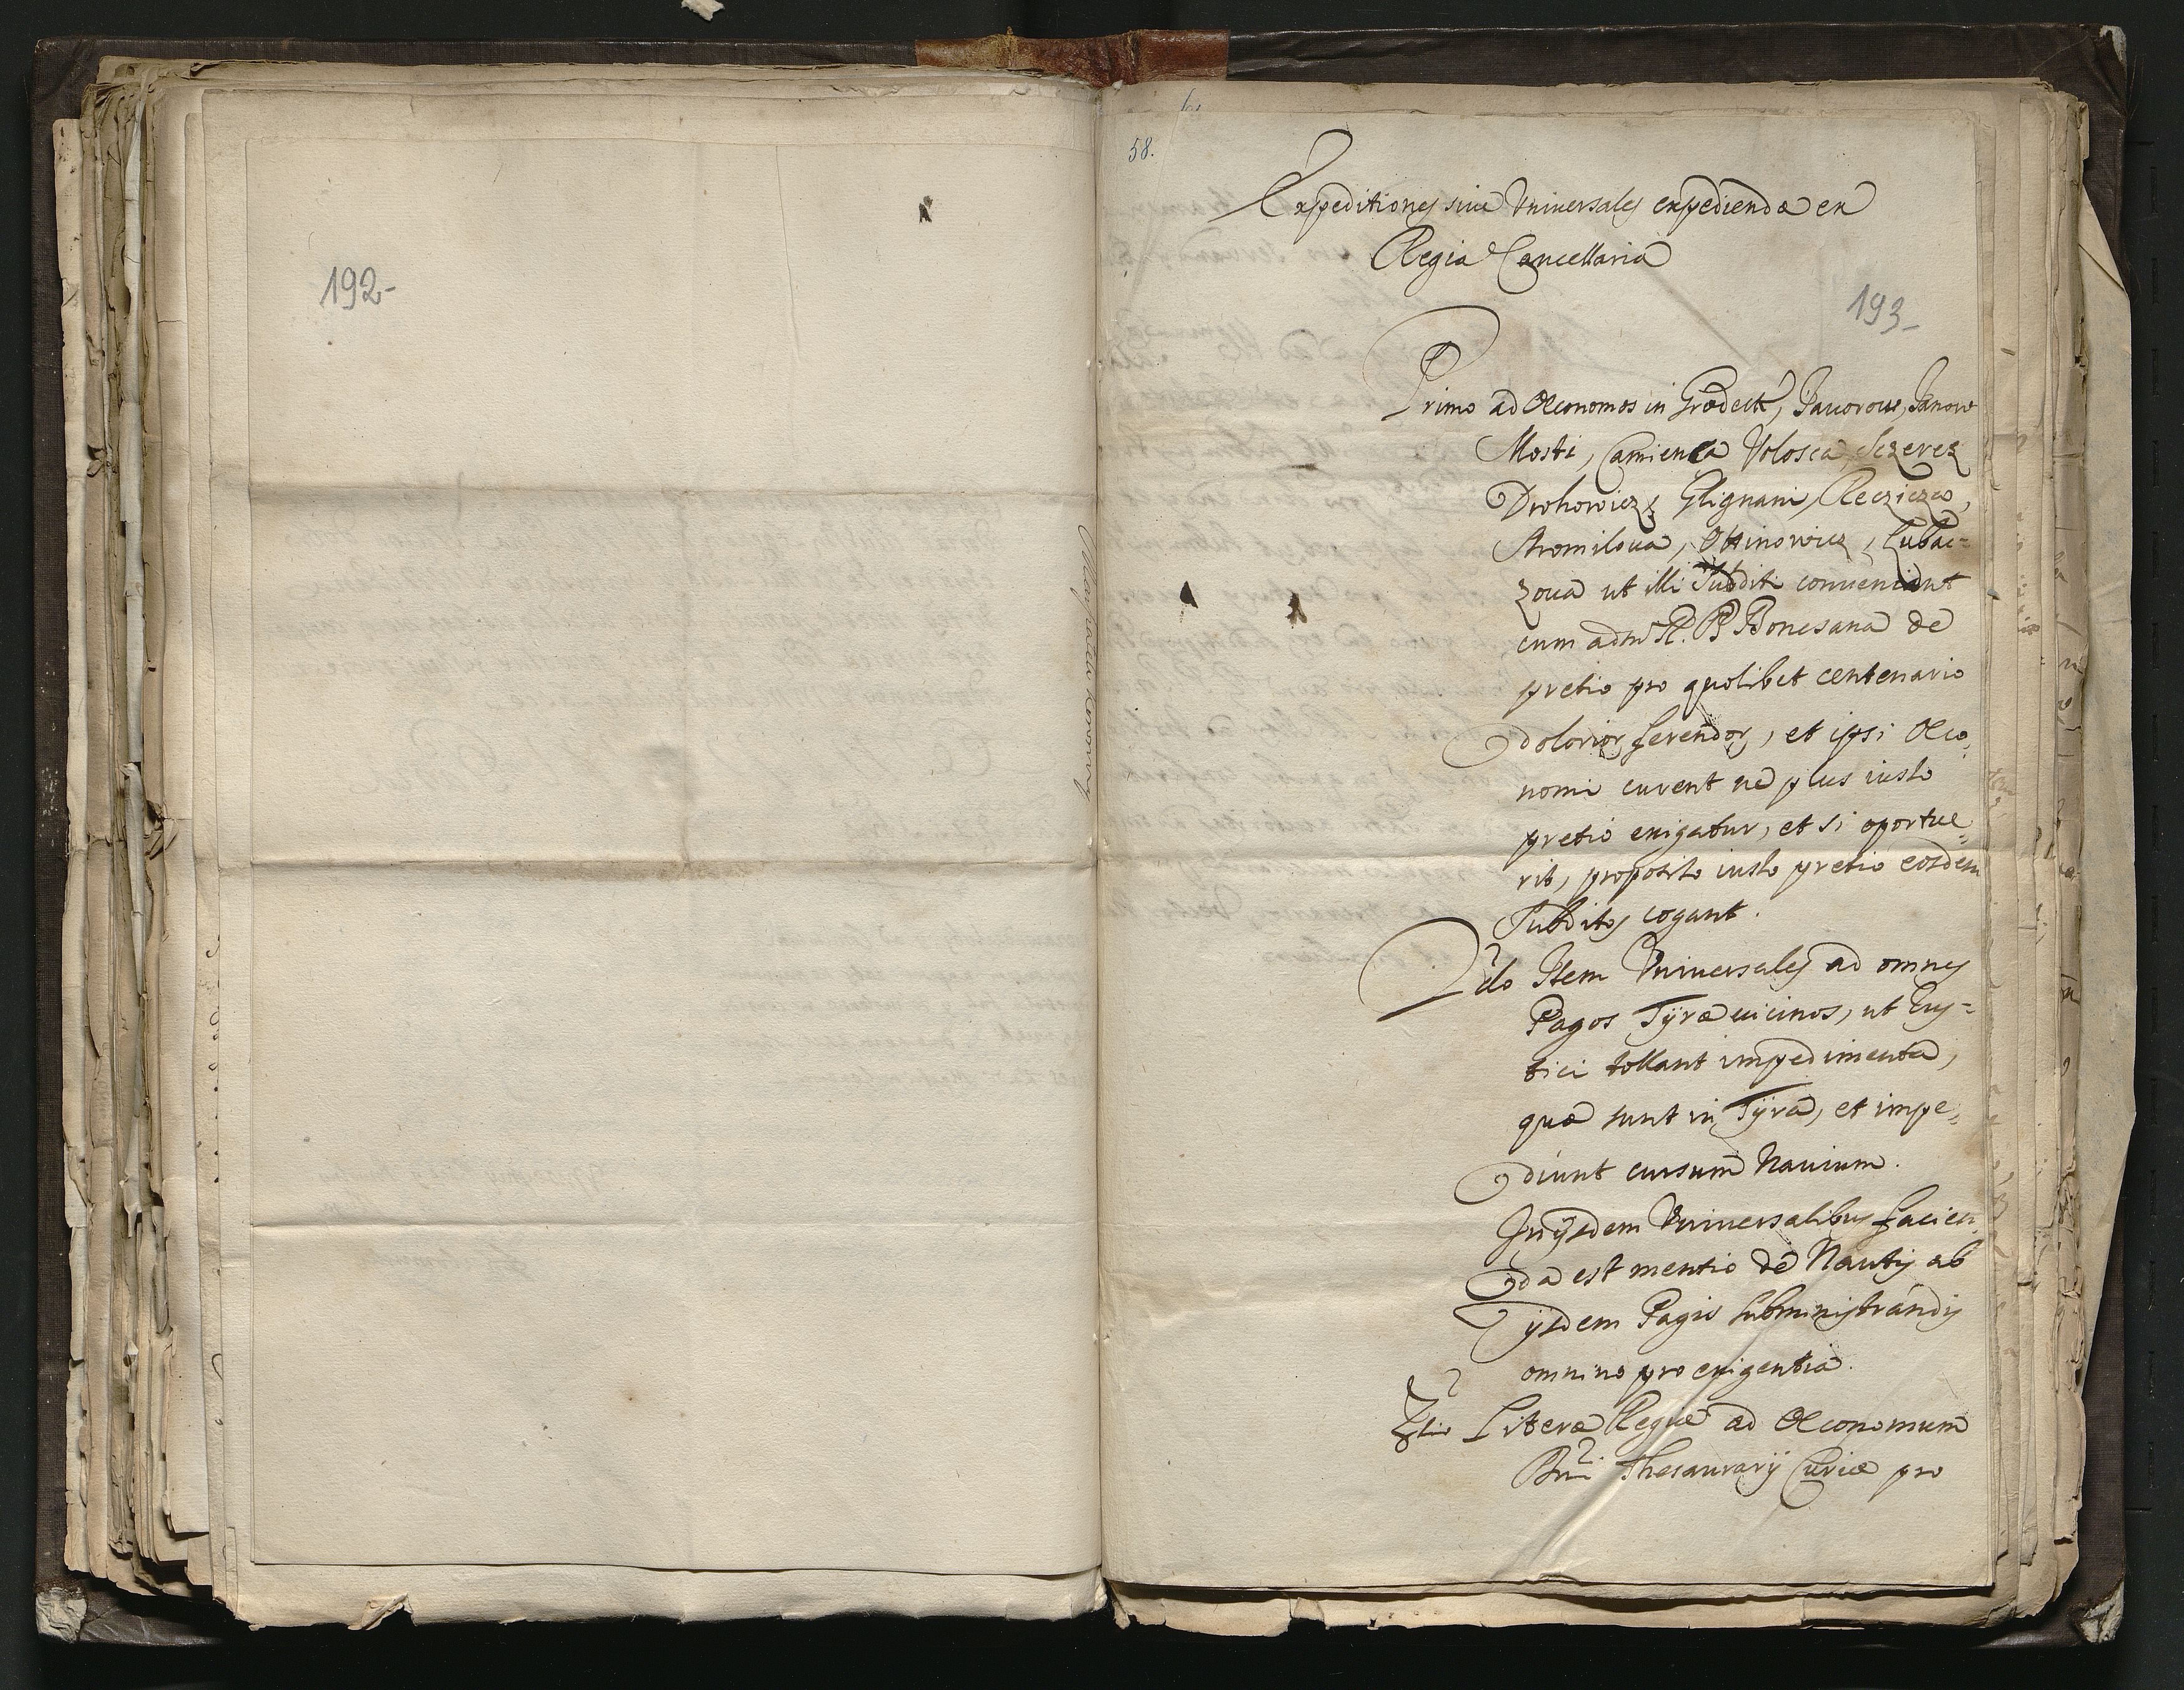 192-
58.
Expeditiones siue Vniuersales expediendæ ex
Regia Cancellaria
193-
Primo ad Œconomos in Grodeck, Jauorow, Janow
Mosti, Camienca Volosca, Sczerez
Drohowicz, Glignani, Recziczo,
Stromiloua, Ottinowicz, Lubac=
zoua ut illi Subditi conueniant
cum adm R. P. Bonesana de
pretio pro quolibet centenario
dolorior ferendor, et ipsi Œco,
nomi curent ne plus iusto
pretio exigatur, et si oportue=
rit, proposito iusto pretio eosdem
Subditos cogant.
2do Item Vniuersales ad omnes
Pagos Tÿræ uicinos, ut Rus=
tici tollant impedimenta,
quæ sunt in Tÿra, et impe,
diunt cursum Nauium.
In ijsdem Vniuersalibus facien,
da est mentio de Nautis ab
ijsdem Pagis subministrandis
omnino pro exigentia.
3tio Literæ Regiæ ad Œconomum
Thesaurarij Curiæ pro